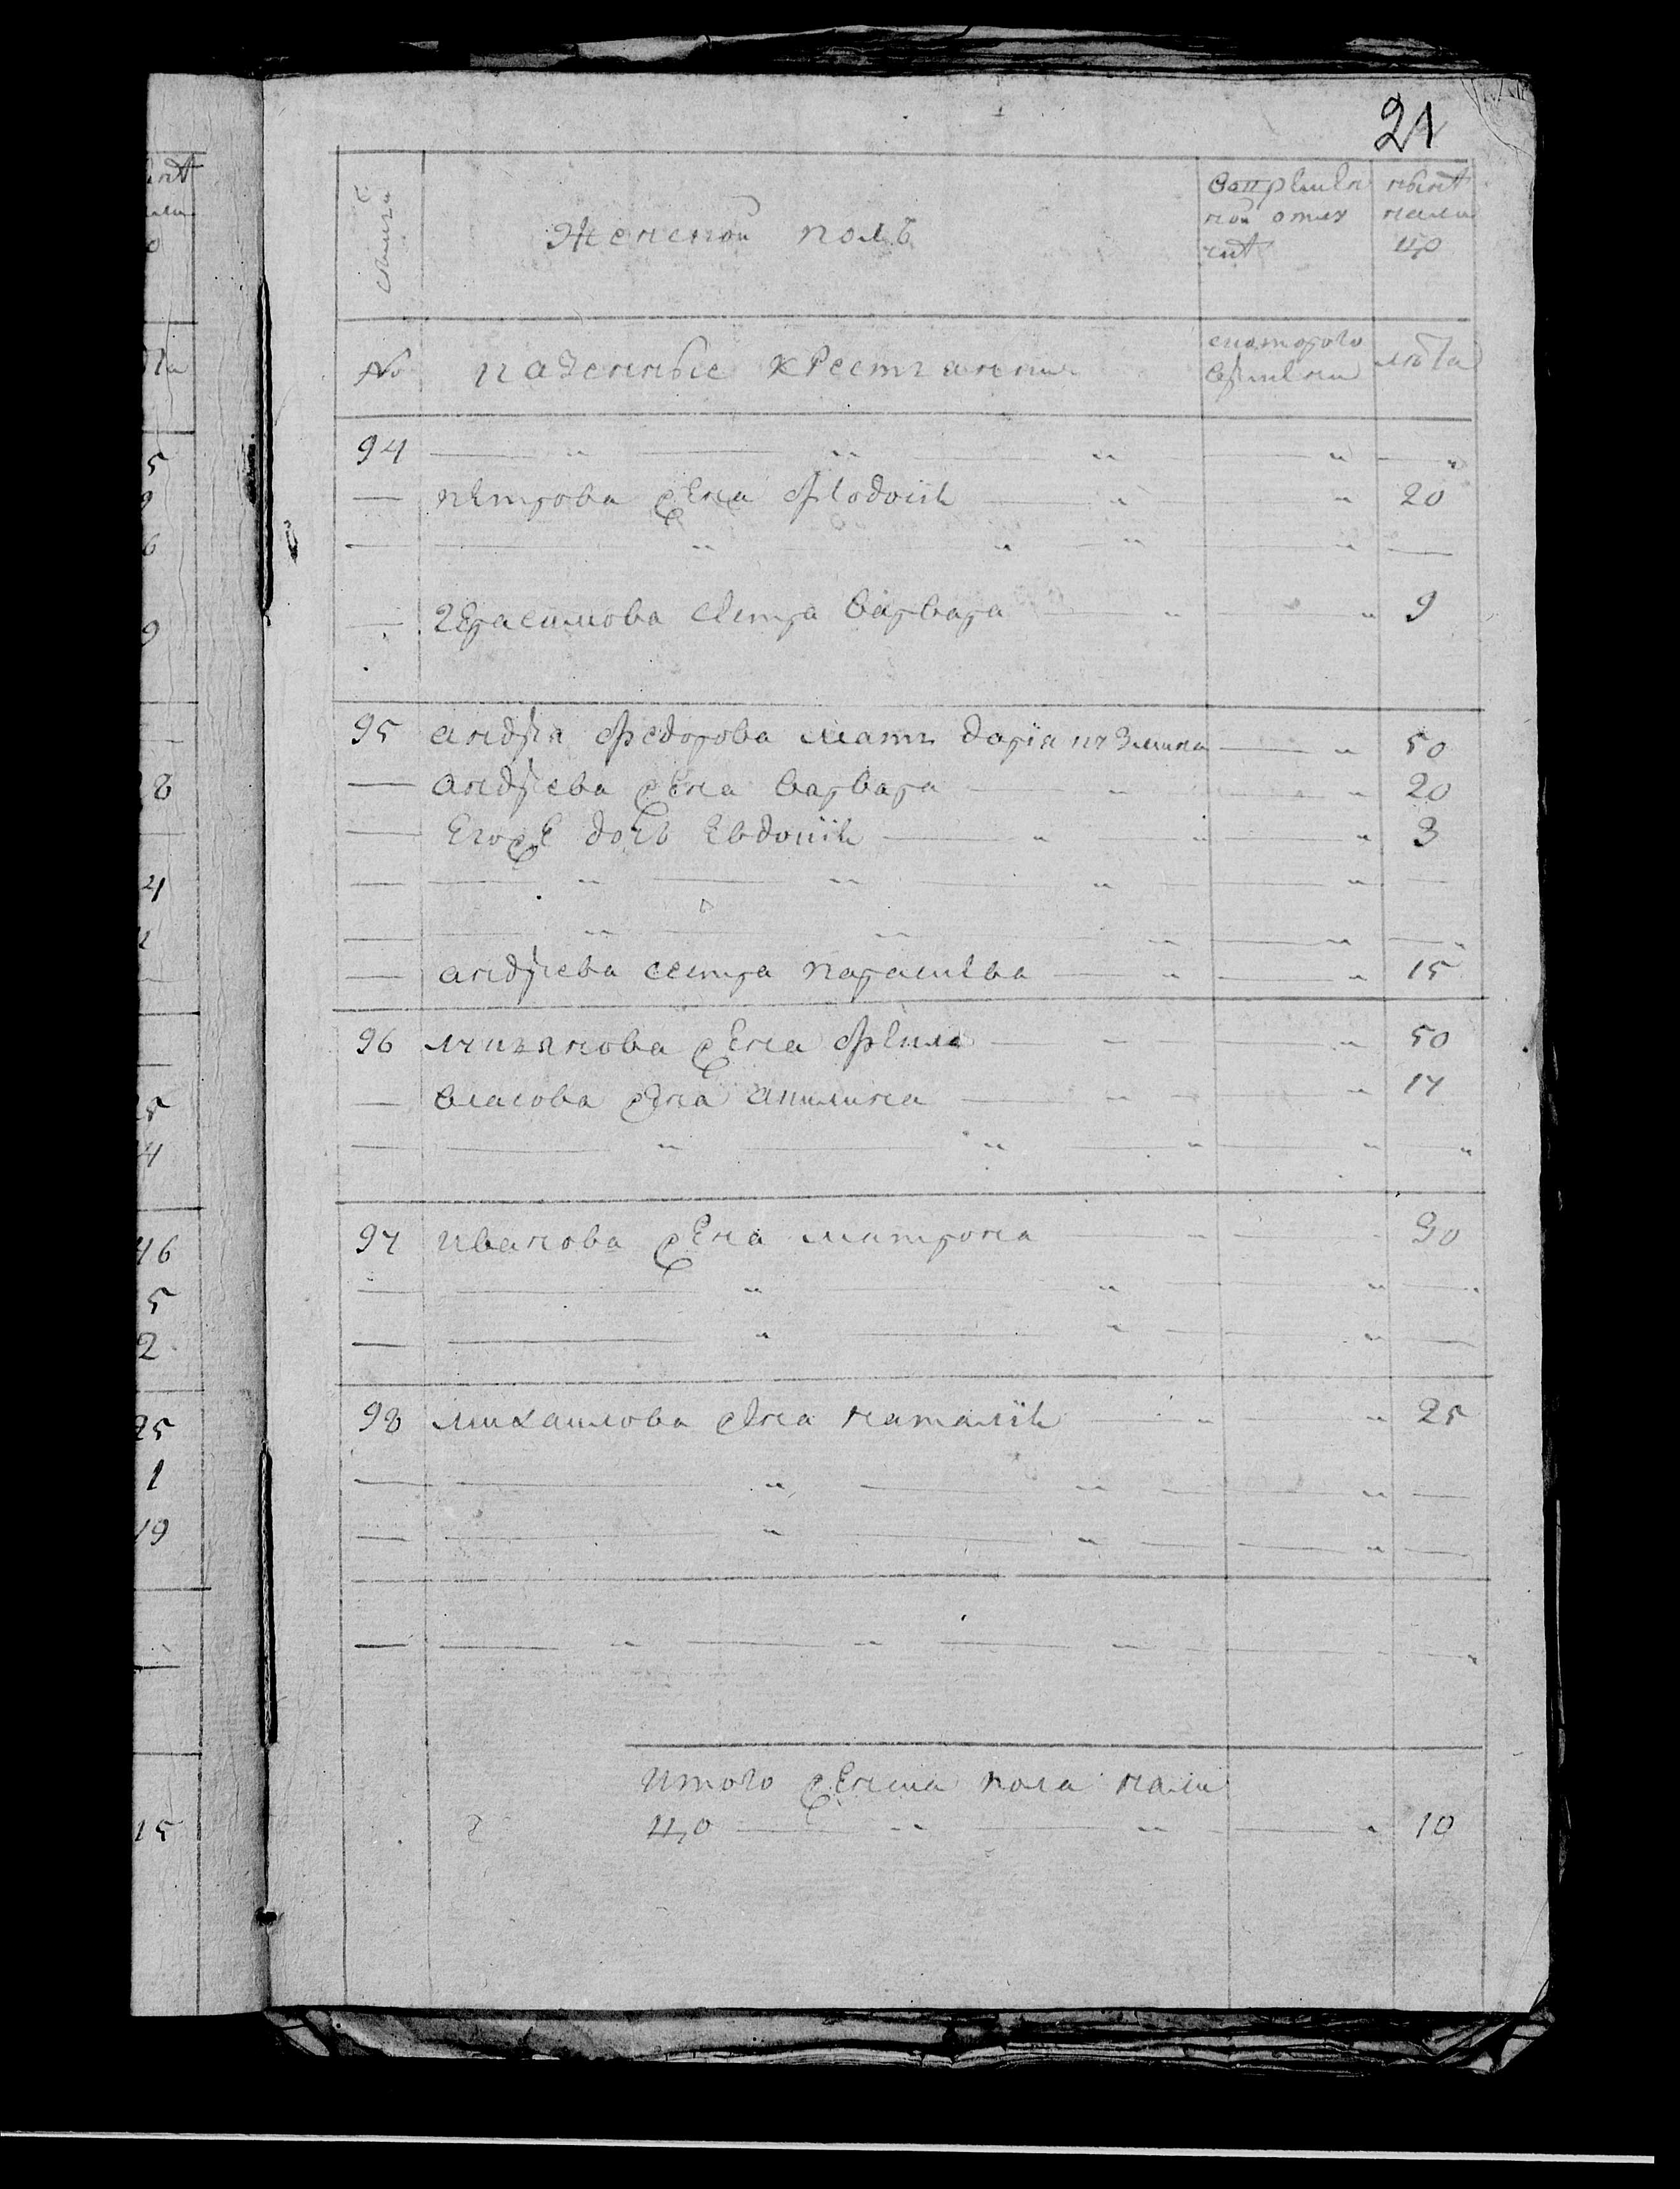 21
Семьи
Женской полъ
Вовремен
ной отлу
чке
Ныне
нали
цо
№
Казенные крестьяне
с которого
времени
лѣта
94
— Петрова жена Федосия 20
— Герасимова сестра Варвара 9
95 Андрея Федорова мать Дарія Кузмина 50
— Андреева жена Варвара 20
— Егоже дочь Евдокия 3
— Андреева сестра Парасковья 15
96 жена Фекла 50
— Власова жена Акилина 17
97 Иванова жена Матрона 30
98 Михаилова жена Наталия 25
Итого женска пола нали
цо 10